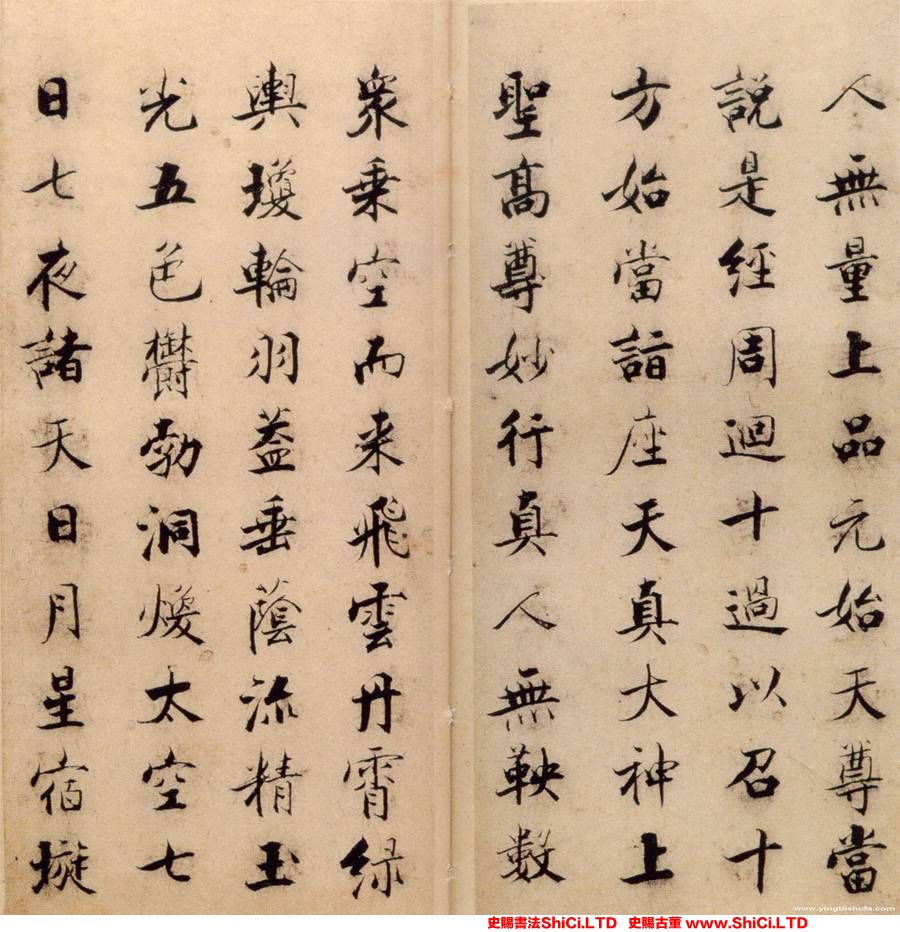 人無量上品元始天尊當
說是經周迴十過以召十
方始當詣座天真大神上
聖高尊妙行真人無鞅數
衆乗空而来飛雲丹霄緑
輿瓊輪羽蓋垂蔭流精玉
光五色欝勃洞煥太空七
日七夜諸天日月星宿璇
www.yingbishufa.com
史賜書法ShiCi.LTD 史賜古董 www.ShiCi.LTD